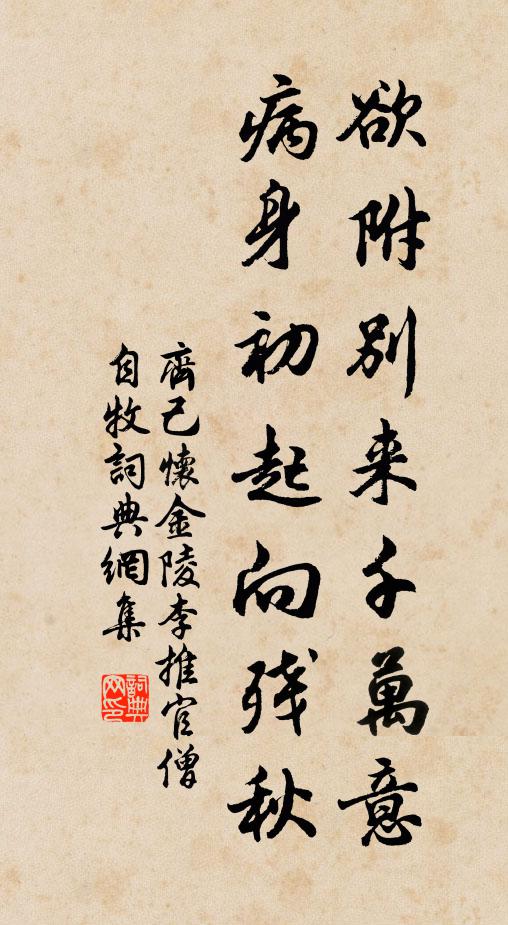 欲附別来千萬意
病身初起向残秋
齊己懷金陵李推官僧
自牧詞典網集
詞典网印